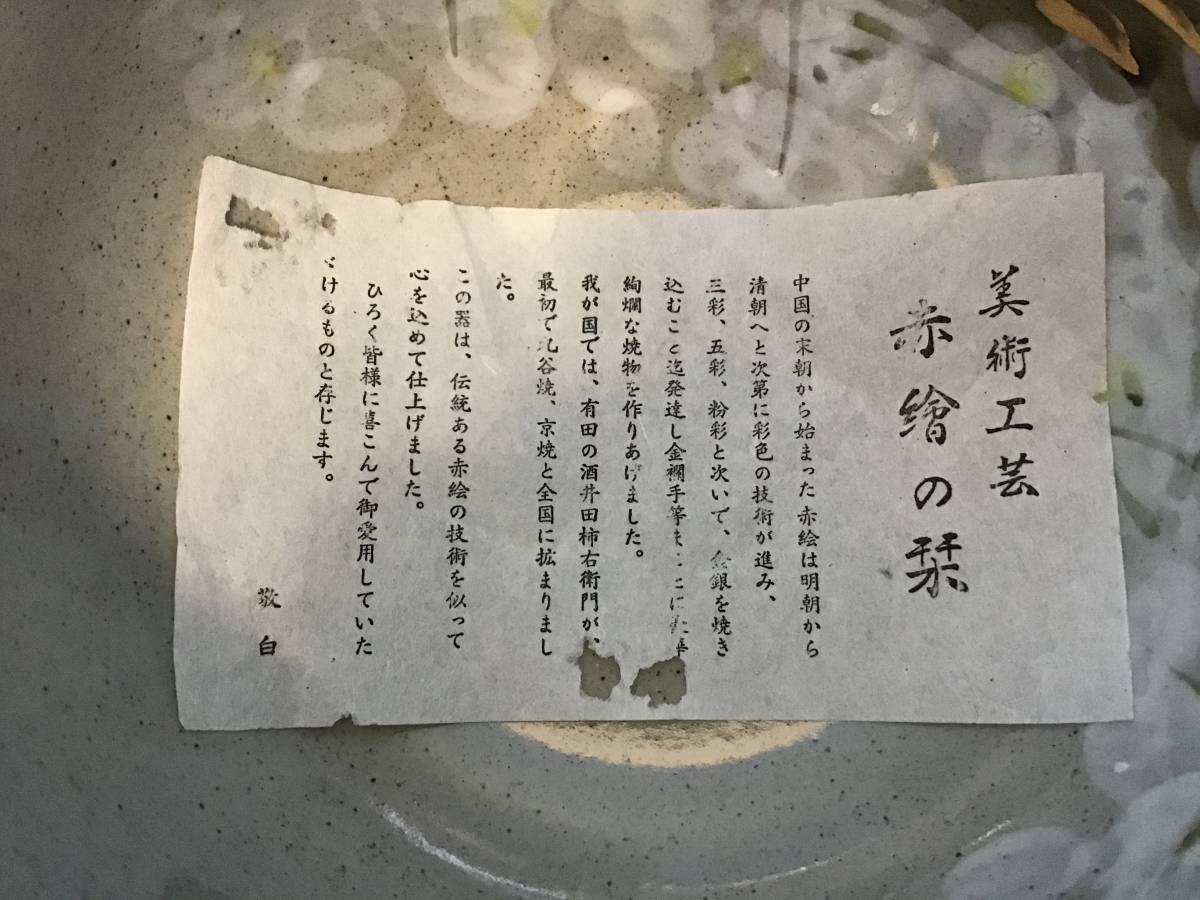 美術工芸
赤繪の栞
中国の宋朝から始まった赤絵は明朝から
清朝へと次第に彩色の技術が進み、
三彩、五彩、粉彩と次いで、金銀を焼き
込むこと迄発達し金襴手等まことに
絢爛な焼物を作りあげました。
我が国では、有田の酒井田柿右衛門が、
最初で九谷焼、京焼と全国に拡まりまし
た。
この器は、伝統ある赤絵の技術を似って
心を込めて仕上げました。
ひろく皆様に喜こんで御愛用していた
ゞけるものと存じます。
敬白